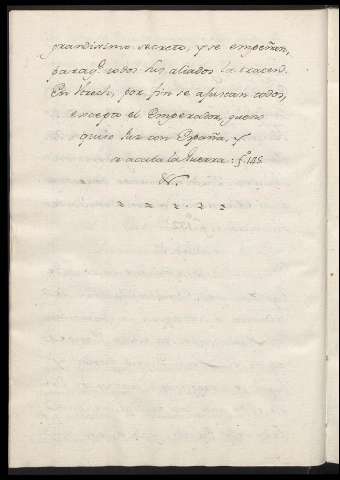 grandissimo secreto, y se empeñan,
paraq.e todos sus aliados la tracen.
En Utrech, por fin se ajustan todos,
excepto el Emperador, quien
quiso Paz con España, y
se acaba la Guerra: f.o 145.
N.